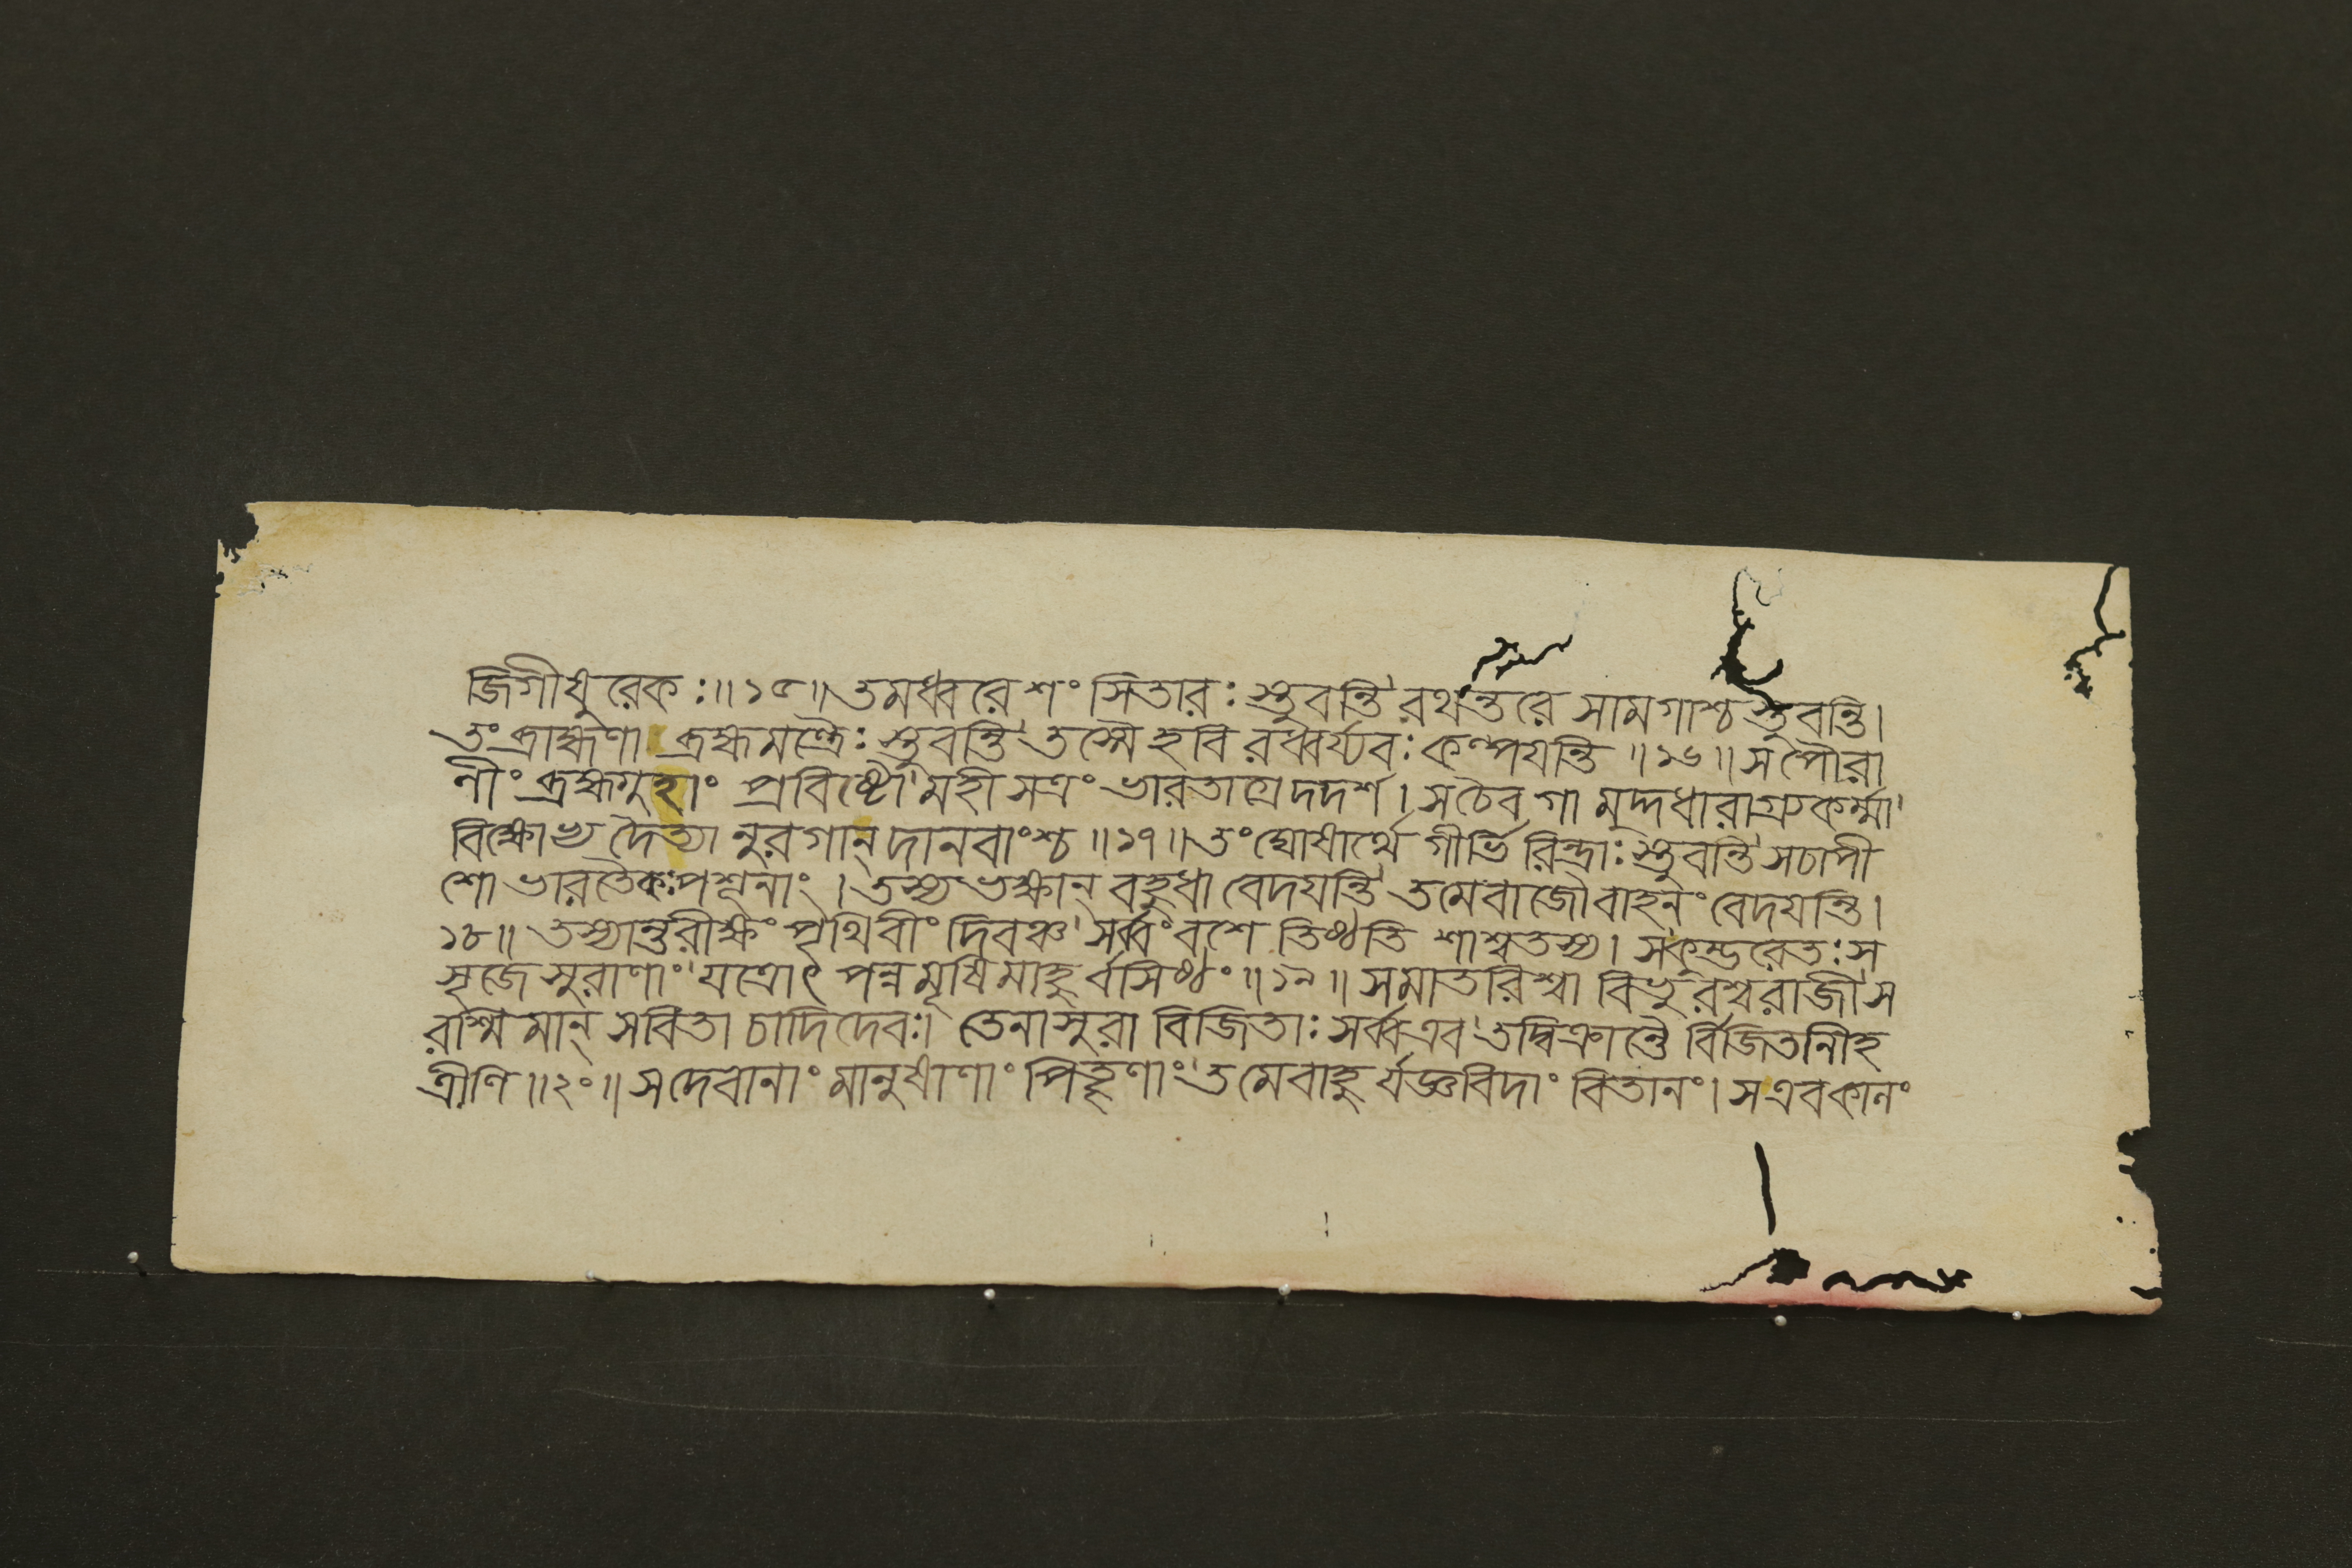 জিগীষুরেকঃ॥১৫॥তমধ্বরে শংসিতারঃ স্তুবন্তি রথন্তরে সামগাশ্চ স্তুবন্তি।
তং ব্রাহ্মণা ব্রহ্মমন্ত্রৈঃ স্তুবন্তি তস্মৈ হবি রধ্বর্য্যবঃ কল্পযন্তি॥১৬॥স পৌরা
ণীং ব্রহ্মগুহাং প্রবিষ্টো মহী সত্রং ভারতাগ্রে দদর্শ। সচৈব গা মুদ্দধারাগ্র্যকর্ম্মা
বিক্ষোভ্য দৈত্যা নুরগান্ দানবাংশ্চ॥১৭॥তং ঘোষার্থে গীর্ভি রিন্দ্রাঃ স্তুবন্তি সচাপী
শো ভারতৈকঃ পশূনাং। তস্য ভক্ষান্ বহুধা বেদযন্তি তমেবাজৌ বাহনং বেদযন্তি।
১৮॥ তস্যান্তরীক্ষং পৃথিবীং দিবঞ্চ সর্ব্বং বশে তিষ্ঠতি শাশ্বতস্য। সকুম্ভরেতঃ স
সৃজে সুরাণাং যত্রোৎ পন্ন মৃষি মাহু র্বসিষ্ঠং॥১৯॥ সমাতরিশ্বা বিভু রশ্বরাজী স
রশ্মি মান্ সবিতা চাদি দেবঃ। তেনাসুরা বিজিতাঃ সর্ব্ব এব তদ্বিক্রান্তৈ র্বিজিতানীহ
ত্রীণি॥২০॥ সদেবানাং মানুষাণাং পিতৄণাং তমেবাহু র্যজ্ঞবিদাং বিতানং। স এব কালং